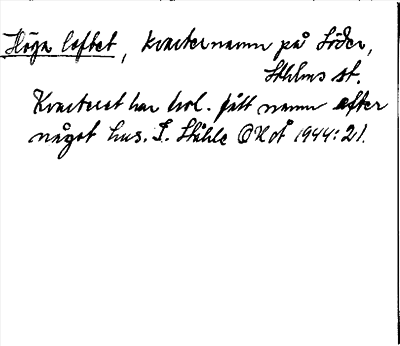 Höga loftet, kvarternamn på Söder,
Sthlms st.
Kvarteret har trol. fått namn efter
något hus. I. Ståhle OUoÅ 1944:21.